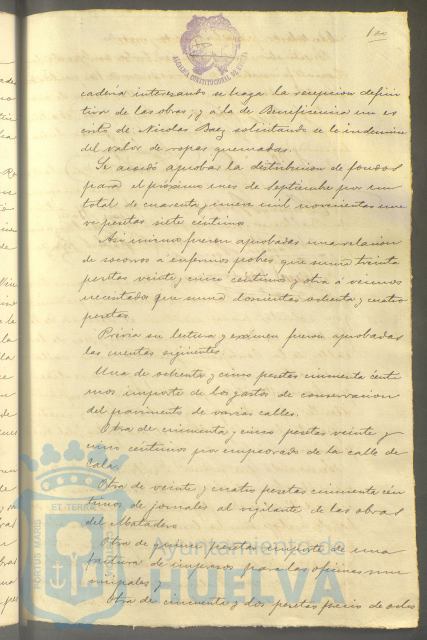 100
ALCALDIA CONSTITUCIONAL DE HUELVA
caderia interesando se haga la recepcion defini
tiva de las obras; y á la de Beneficencia un es
crito de Nicolas Baez solicitando se le indemnice
del valor de ropas quemadas.
Se acordó aprobar la distribucion de fondos
para el próximo mes de Septiembre por un
total de cuarenta y nueve mil novecientas nue
ve pesetas siete céntimos.
Asi mismo fueron aprobadas una relacion
de socorros a enfermos pobres que suma treinta
pesetas veinte y cinco centimos y otra á vecinos
necesitados que suma doscientas ochenta y cuatro
pesetas.
Prévia su lectura y exámen fueron aprobadas
las cuentas siguientes.
Una de ochenta y cinco pesetas cincuenta cénti
mos importe de los gastos de conservacion
del pavimento de varias calles.
Otra de cincuenta y cinco pesetas veinte y
cinco centimos por empedrado de la calle de
Cala.
Otra de veinte y cuatro pesetas cincuenta cén
timos de jornales al vigilante de las obras
del Matadero
Otra de quince pesetas importe de una
factura de impresos para las oficinas mu
nicipales y
Otra de cincuenta y dos pesetas precio de
PORTUS MARIS
ET TERRAE
Ayuntamiento de
HUELVA